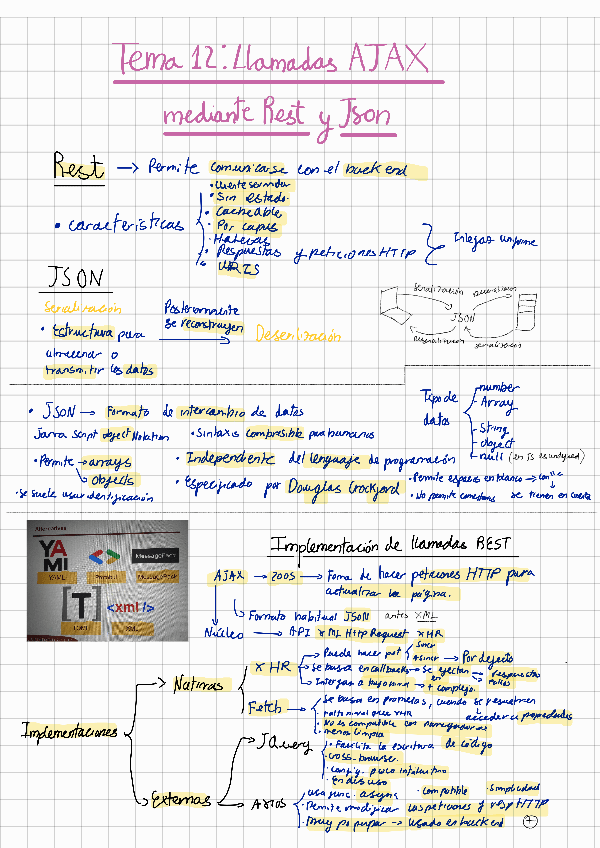 Tema 12: Llamadas AJAX
mediante Rest y Json
Rest → Permite comunicarse con el backend
• características
• Cliente servidor
• Sin estado.
• Cacheable
• Por capas
• Respuestas y peticiones HTTP
• URIS
Interfaz uniforme
JSON
Serialización
• Estructura para
almacenar o
transmitir los datos
Posteriormente
se reconstruyen
Deserilización
serialización
JSON
• JSON → Formato de intercambio de datos
Java Script object Notation
• Sintaxis compresible para humanos
• Permite → arrays
objects
• Independente del lenguaje de programación
• se suele usar identificación
• Especificado por Douglas Crockford
Tipo de
datos
number
Array
String
object
null (en JS es undefined)
• Permite espacios en blanco → con " "
• No permite comentarios
se tienen en cuenta
Alternativas
YA
ML
YAML
Protobuf
MessagePack
MessagePack
[T]
TOML
<xml/>
XML
Implementación de llamadas REST
AJAX → 2005 → Forma de hacer peticiones HTTP para
actualizar la página.
Formato habitual JSON antes XML
Núcleo → API XML Http Request XHR
Implementaciones
Nativas
XHR
Puede hacer pet
Sincr
Asincr → Por defecto
Se basa en callbacks → se ejecutan
en
respuestas
Interfaz a bajo nivel → + complejo.
Fetch
Se basa en promesas, cuando se resuelven
acceder a propiedades
• No es compatible con navegadores
• menos limpia
Externas
JQuery
• Facilita la escritura de código
• cross-browser.
• Config. poco intuitivo
• En desuso
Axios
usa func. async
• compatible
• simplicidad
• Permite modificar las peticiones y resp HTTP
• Muy popular → usado en backend
+